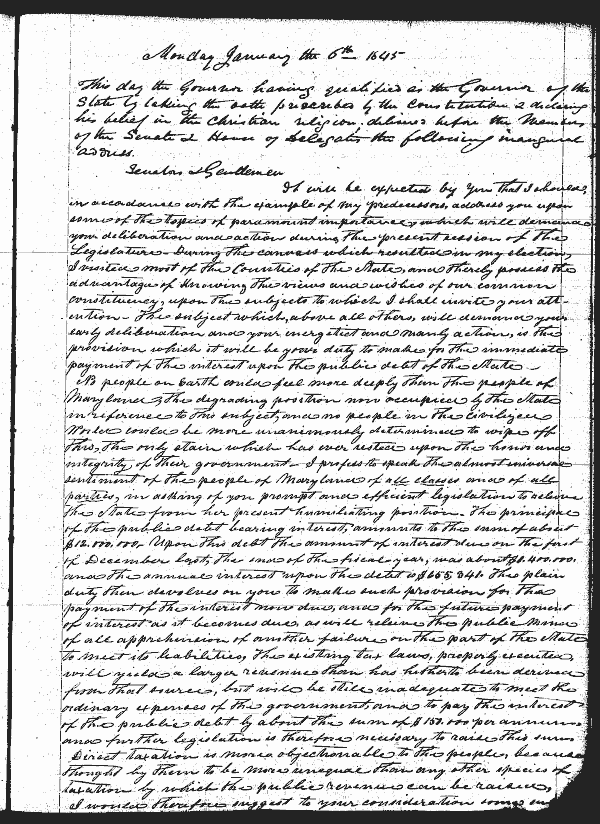 Monday January the 6th 1845
This day the Governor having qualified as the Governor of the
State by taking the oath prescribed by the Constitution & declaring
his belief in the Christian religion. delivered before the Members
of the Senate & House of Delegates the following inaugural
address.
Senators & Gentlemen
It will be expected by you that I should,
in accordance with the example of my predecessors, address you upon
some of the topics of paramount importance, which will demand
your deliberation and action during the present session of the
Legislature. During the canvass which resulted in my election,
I visited most of the Counties of the State, and thereby possess the
advantage of knowing the views and wishes of our common
constituency, upon the subjects to which I shall invite your att-
ention. The subject which, above all others, will demand your
early deliberation and your energetic and manly action, is the
provision which it will be your duty to make for the immediate
payment of the interest upon the public debt of the State.
No people on Earth could feel more deeply than the people of
Maryland, the degrading position now occupied by the State
in reference to this subject, and no people in the civilized
World could be more unanimously determined to wipe off
this, the only stain which has ever rested upon the honor and
integrity, of their government. I profess to speak the almost universal
sentiment of the people of Maryland of all classes and of all
parties, in asking of you prompt and efficient legislation to relieve
the State from her present humiliating position. The principal
of the public debt bearing interest, amounts to the sum of about
$12.000.000. Upon this debt the amount of interest due on the first
of December last, the end of the fiscal year, was about $1.400.000.
and the annual interest upon the debt is $655.341. The plain
duty then devolves on you to make such provision for the
payment of the interest now due, and for the future payment
of interest as it becomes due, as will relieve the public mind
of all apprehension of another failure on the part of the State
to meet its liabilities, The existing tax laws, properly executed,
will yield a larger revenue than has hitherto been derived
from that source, but will be still inadequate to meet the
ordinary expenses of the government and to pay the interest
of the public debt by about the sum of $150.000 per annum
and further legislation is therefore necessary to raise this sum
Direct taxation is more objectionable to the people, because
thought by them to be more unequal than any other species of
taxation by which the public revenue can be raised,
I would therefore suggest to your consideration some